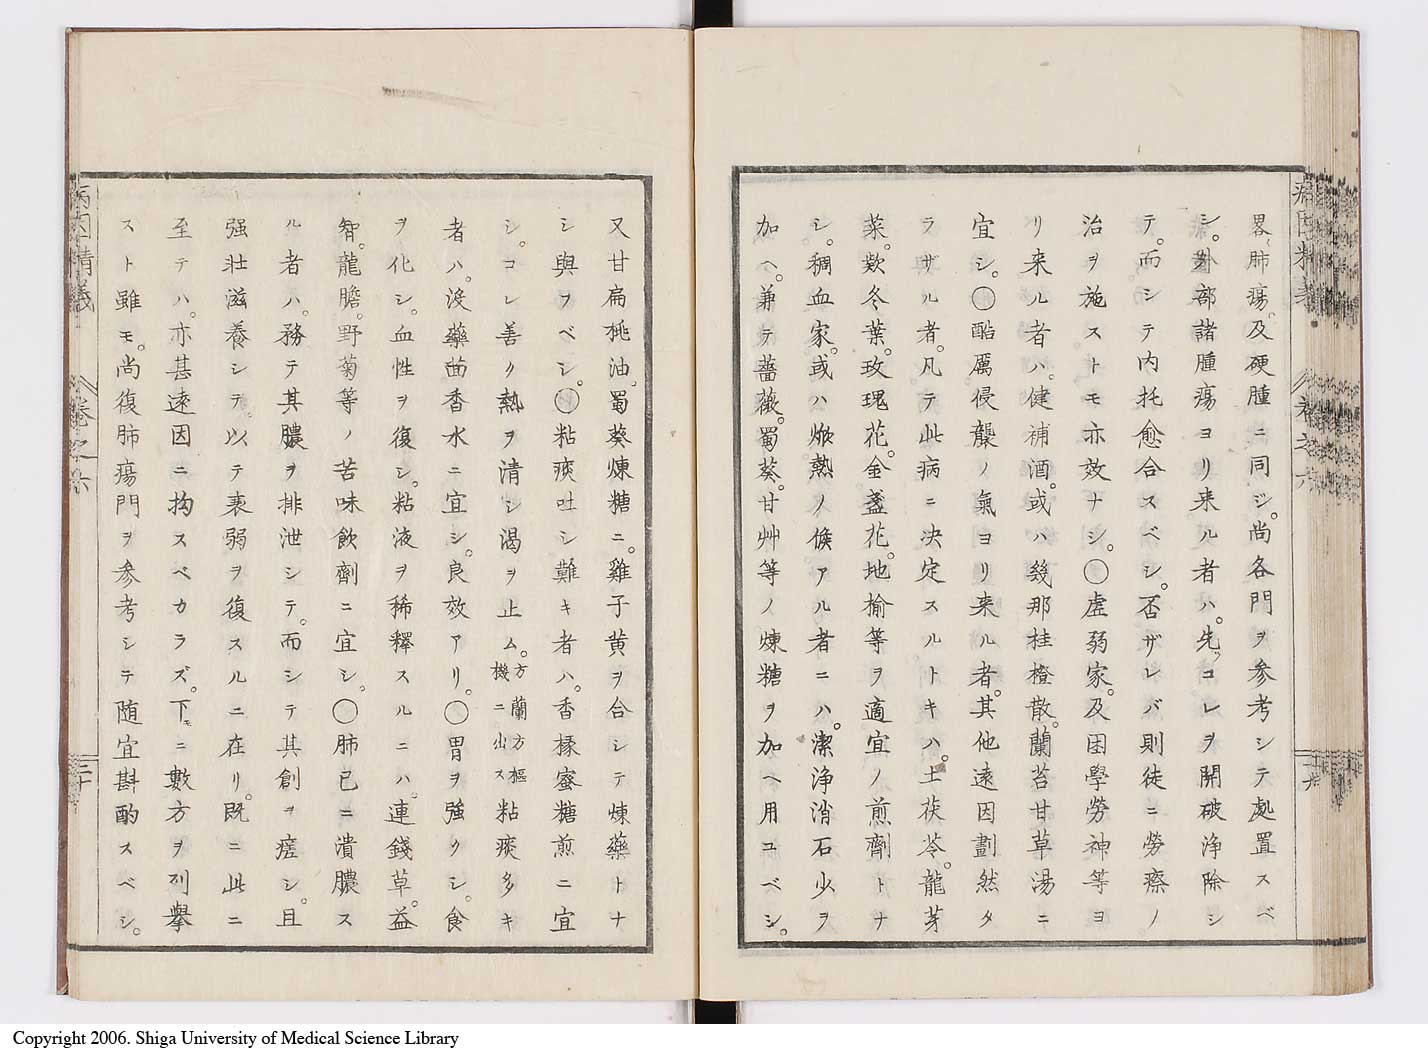 畧肺瘍。及硬腫ニ同ジ。尚各門ヲ参考シテ處置スベ
シ。外部諸腫瘍ヨリ来ル者ハ。先ッコレヲ開破浄除シ
テ。而シテ内托愈合スベシ。否ザレバ則徒ニ勞瘵ノ
治ヲ施ストモ亦效ナシ。〇虚弱家。及困學勞神等ヨ
リ来ル者ハ。健補酒。或ハ幾那桂橙散。蘭苔甘草湯ニ
宜シ。〇酷厲侵襲ノ氣ヨリ来ル者。其他遠因劃然タ
ラザル者。凡テ此病ニ決定スルトキハ。土茯苓。龍芽
菜。欵冬葉。玫瑰花。金盞花。地榆等ヲ適宜ノ煎劑トナ
シ。稠血家。或ハ焮熱ノ候アル者ニハ。潔浄消石少ヲ
加ヘ。兼テ薔薇。蜀葵。甘艸等ノ煉糖ヲ加ヘ用ユベシ。
病因精義 卷之六 二十
又甘扁桃油。蜀葵煉糖ニ。雞子黄ヲ合シテ煉藥トナ
シ與フベシ。〇粘痰吐シ難キ者ハ。香橼蜜糖煎ニ宜
シ。コレ善ク熱ヲ清シ渴ヲ止ム。方蘭方樞機ニ出ス粘痰多キ
者ハ。沒藥茴香水ニ宜シ。良效アリ。〇胃ヲ強クシ。食
ヲ化シ。血性ヲ復シ。粘液ヲ稀釋スルニハ。連錢草。益
智。龍膽。野菊等ノ苦味飲劑ニ宜シ。〇肺已ニ潰膿ス
ル者ハ。務テ其膿ヲ排泄シテ。而シテ其創ヲ瘥シ。且
强壮滋養シテ。以テ衰弱ヲ復スルニ在リ。既ニ此ニ
至テハ。亦甚遠因ニ拘スベカラズ。下モニ數方ヲ列擧
スト雖モ。尚復肺瘍門ヲ参考シテ随宜斟酌スベシ。
Copyright 2006. Shiga University of Medical Science Library